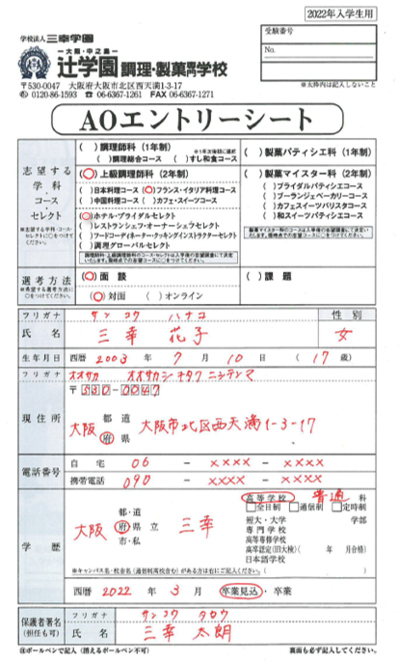 2022年入学生用
学校法人 三幸学園
－大阪・中之島－
辻学園 調理・製菓専門学校
〒530-0047 大阪府大阪市北区西天満1-3-17
0120-86-1593 ☎ 06-6367-1261 FAX 06-6367-1271
受験番号
No.
※太枠内は記入しないこと
AOエントリーシート
志望する
学科
コース・
セレクト
( ) 調理師科（1年制）
( )調理総合コース ( )すし和食コース
(○) 上級調理師科（2年制）
( )日本料理コース (○)フランス・イタリア料理コース
( )中国料理コース ( )カフェ・スイーツコース
(○)ホテル・ブライダルセレクト
( )レストランシェフ・オーナーシェフセレクト
( )フードコーディネーター・クッキングインストラクターセレクト
( )調理グローバルセレクト
( ) 製菓パティシエ科（1年制）
( ) 製菓マイスター科（2年制）
( )ブライダルパティシエコース
( )ブーランジェベーカリーコース
( )カフェスイーツバリスタコース
( )和スイーツパティシエコース
選考方法
(○) 面 談
(○) 対面 ( ) オンライン
( ) 課 題
フリガナ サンコウ ハナコ
性別
氏名 三幸 花子 女
生年月日 西暦 2003 年 7 月 10 日 ( 17 歳)
フリガナ オオサカ オオサカシ キタク ニシテンマ
〒530-0047
現住所
大阪 都 道 府 県 大阪市北区西天満1-3-17
電話番号
自宅 06 - ×××× - ××××
携帯電話 090 - ×××× - ××××
学歴
大阪 都・道 府 県 立 市・私 三幸
高等学校 普通 科
□全日制 □通信制 □定時制
短大・大学 学部
専門学校
高等専修学校
高卒認定(旧大検)( 年 月合格)
日本語学校
西暦 2022 年 3 月 卒業見込・卒業
保護者署名
(担任も可)
フリガナ サンコウ タロウ
氏名 三幸 太朗
㊟ボールペンで記入（消えるボールペン不可）
裏面も必ず記入してください。